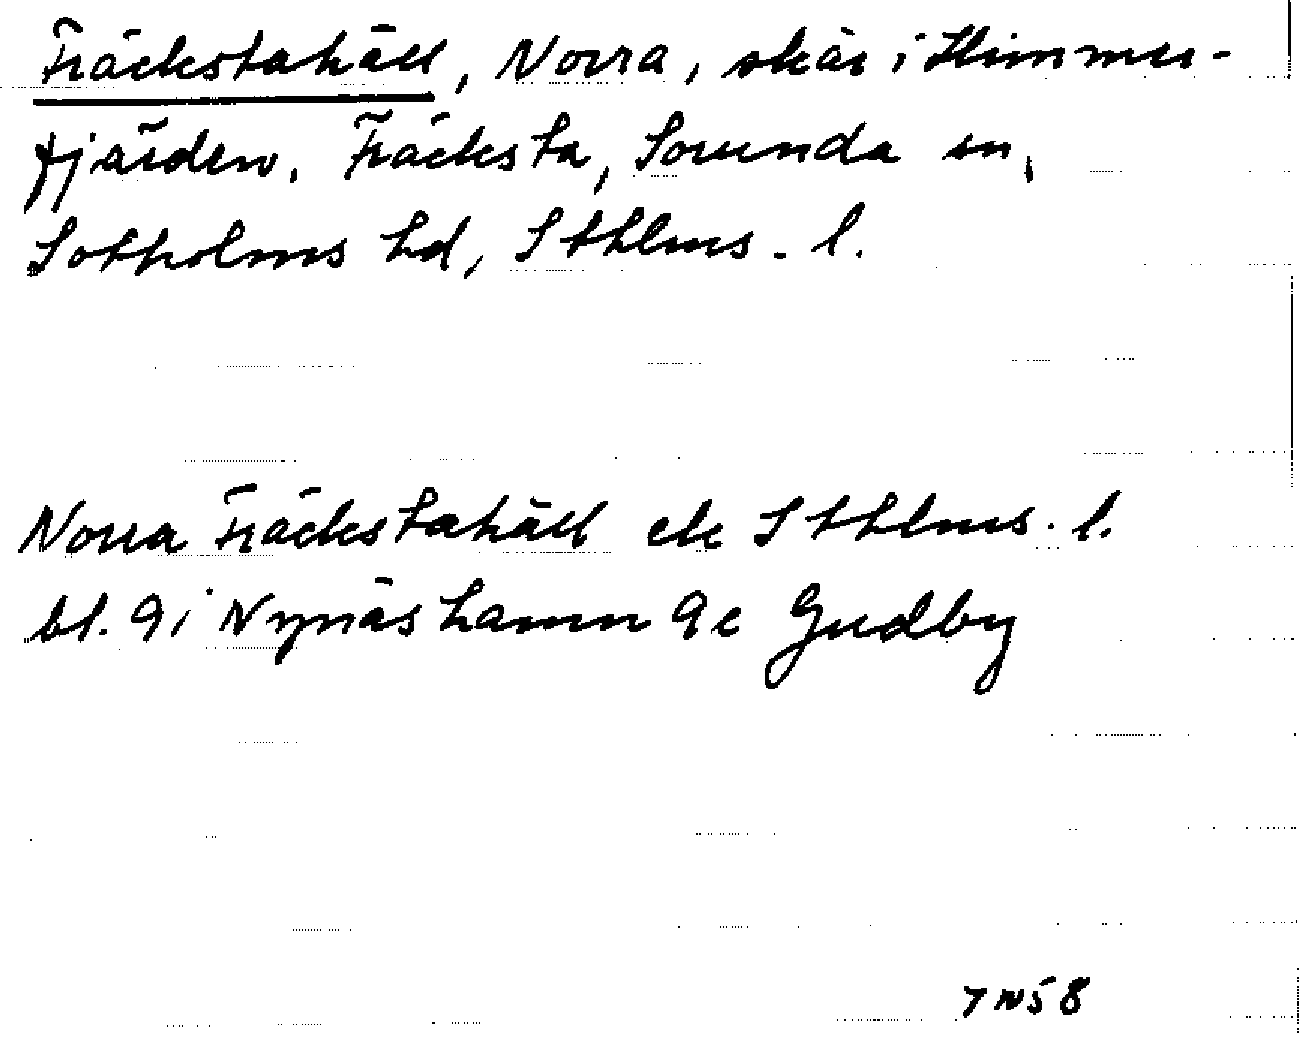 Fräckstahäll, Norra, skär i Himmer-
fjärden. Fräcksta, Sorunda sn,
Sotholms hd, Sthlms. l.
Norra Fräckstahäll ek Sthlms. l.
bl. 9i Nynäshamn 9c Gudby
7N58